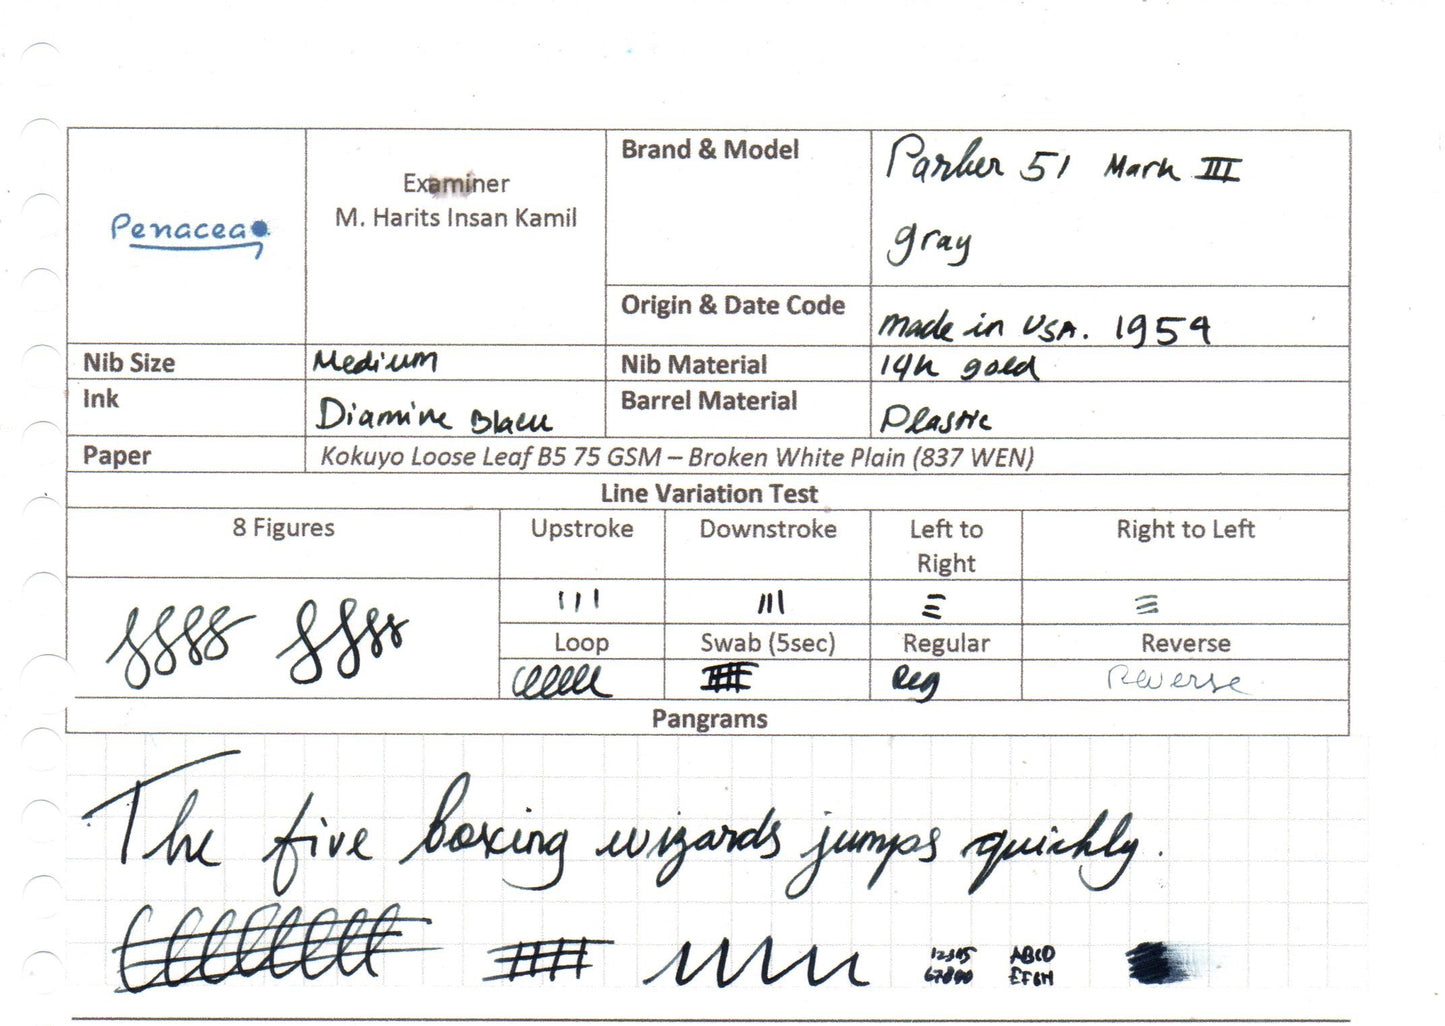 Penacea
Examiner
M. Harits Insan Kamil
Brand & Model
Parker 51 Mark III
gray
Origin & Date Code
made in USA. 1954
Nib Size
Medium
Nib Material
14k gold
Ink
Diamine Black
Barrel Material
Plastic
Paper
Kokuyo Loose Leaf B5 75 GSM – Broken White Plain (837 WEN)
Line Variation Test
8 Figures
Upstroke
Downstroke
Left to
Right
Right to Left
Loop
Swab (5sec)
Regular
Reverse
Reg
Reverse
Pangrams
The five boxing wizards jumps quickly.
12345 ABCD
67890 EFGH